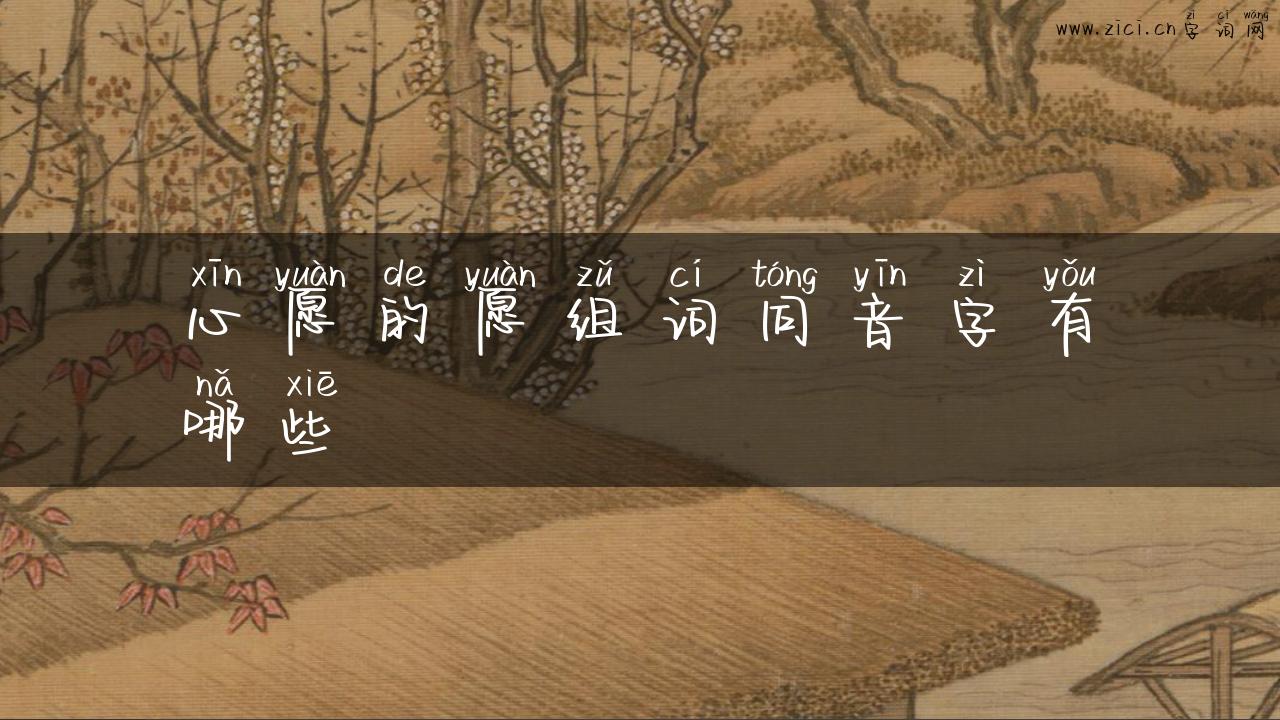 zì cí wǎng
www.zici.cn字词网
xīn yuàn de yuàn zǔ cí tóng yīn zì yǒu
心愿的愿组词同音字有
nǎ xiē
哪些